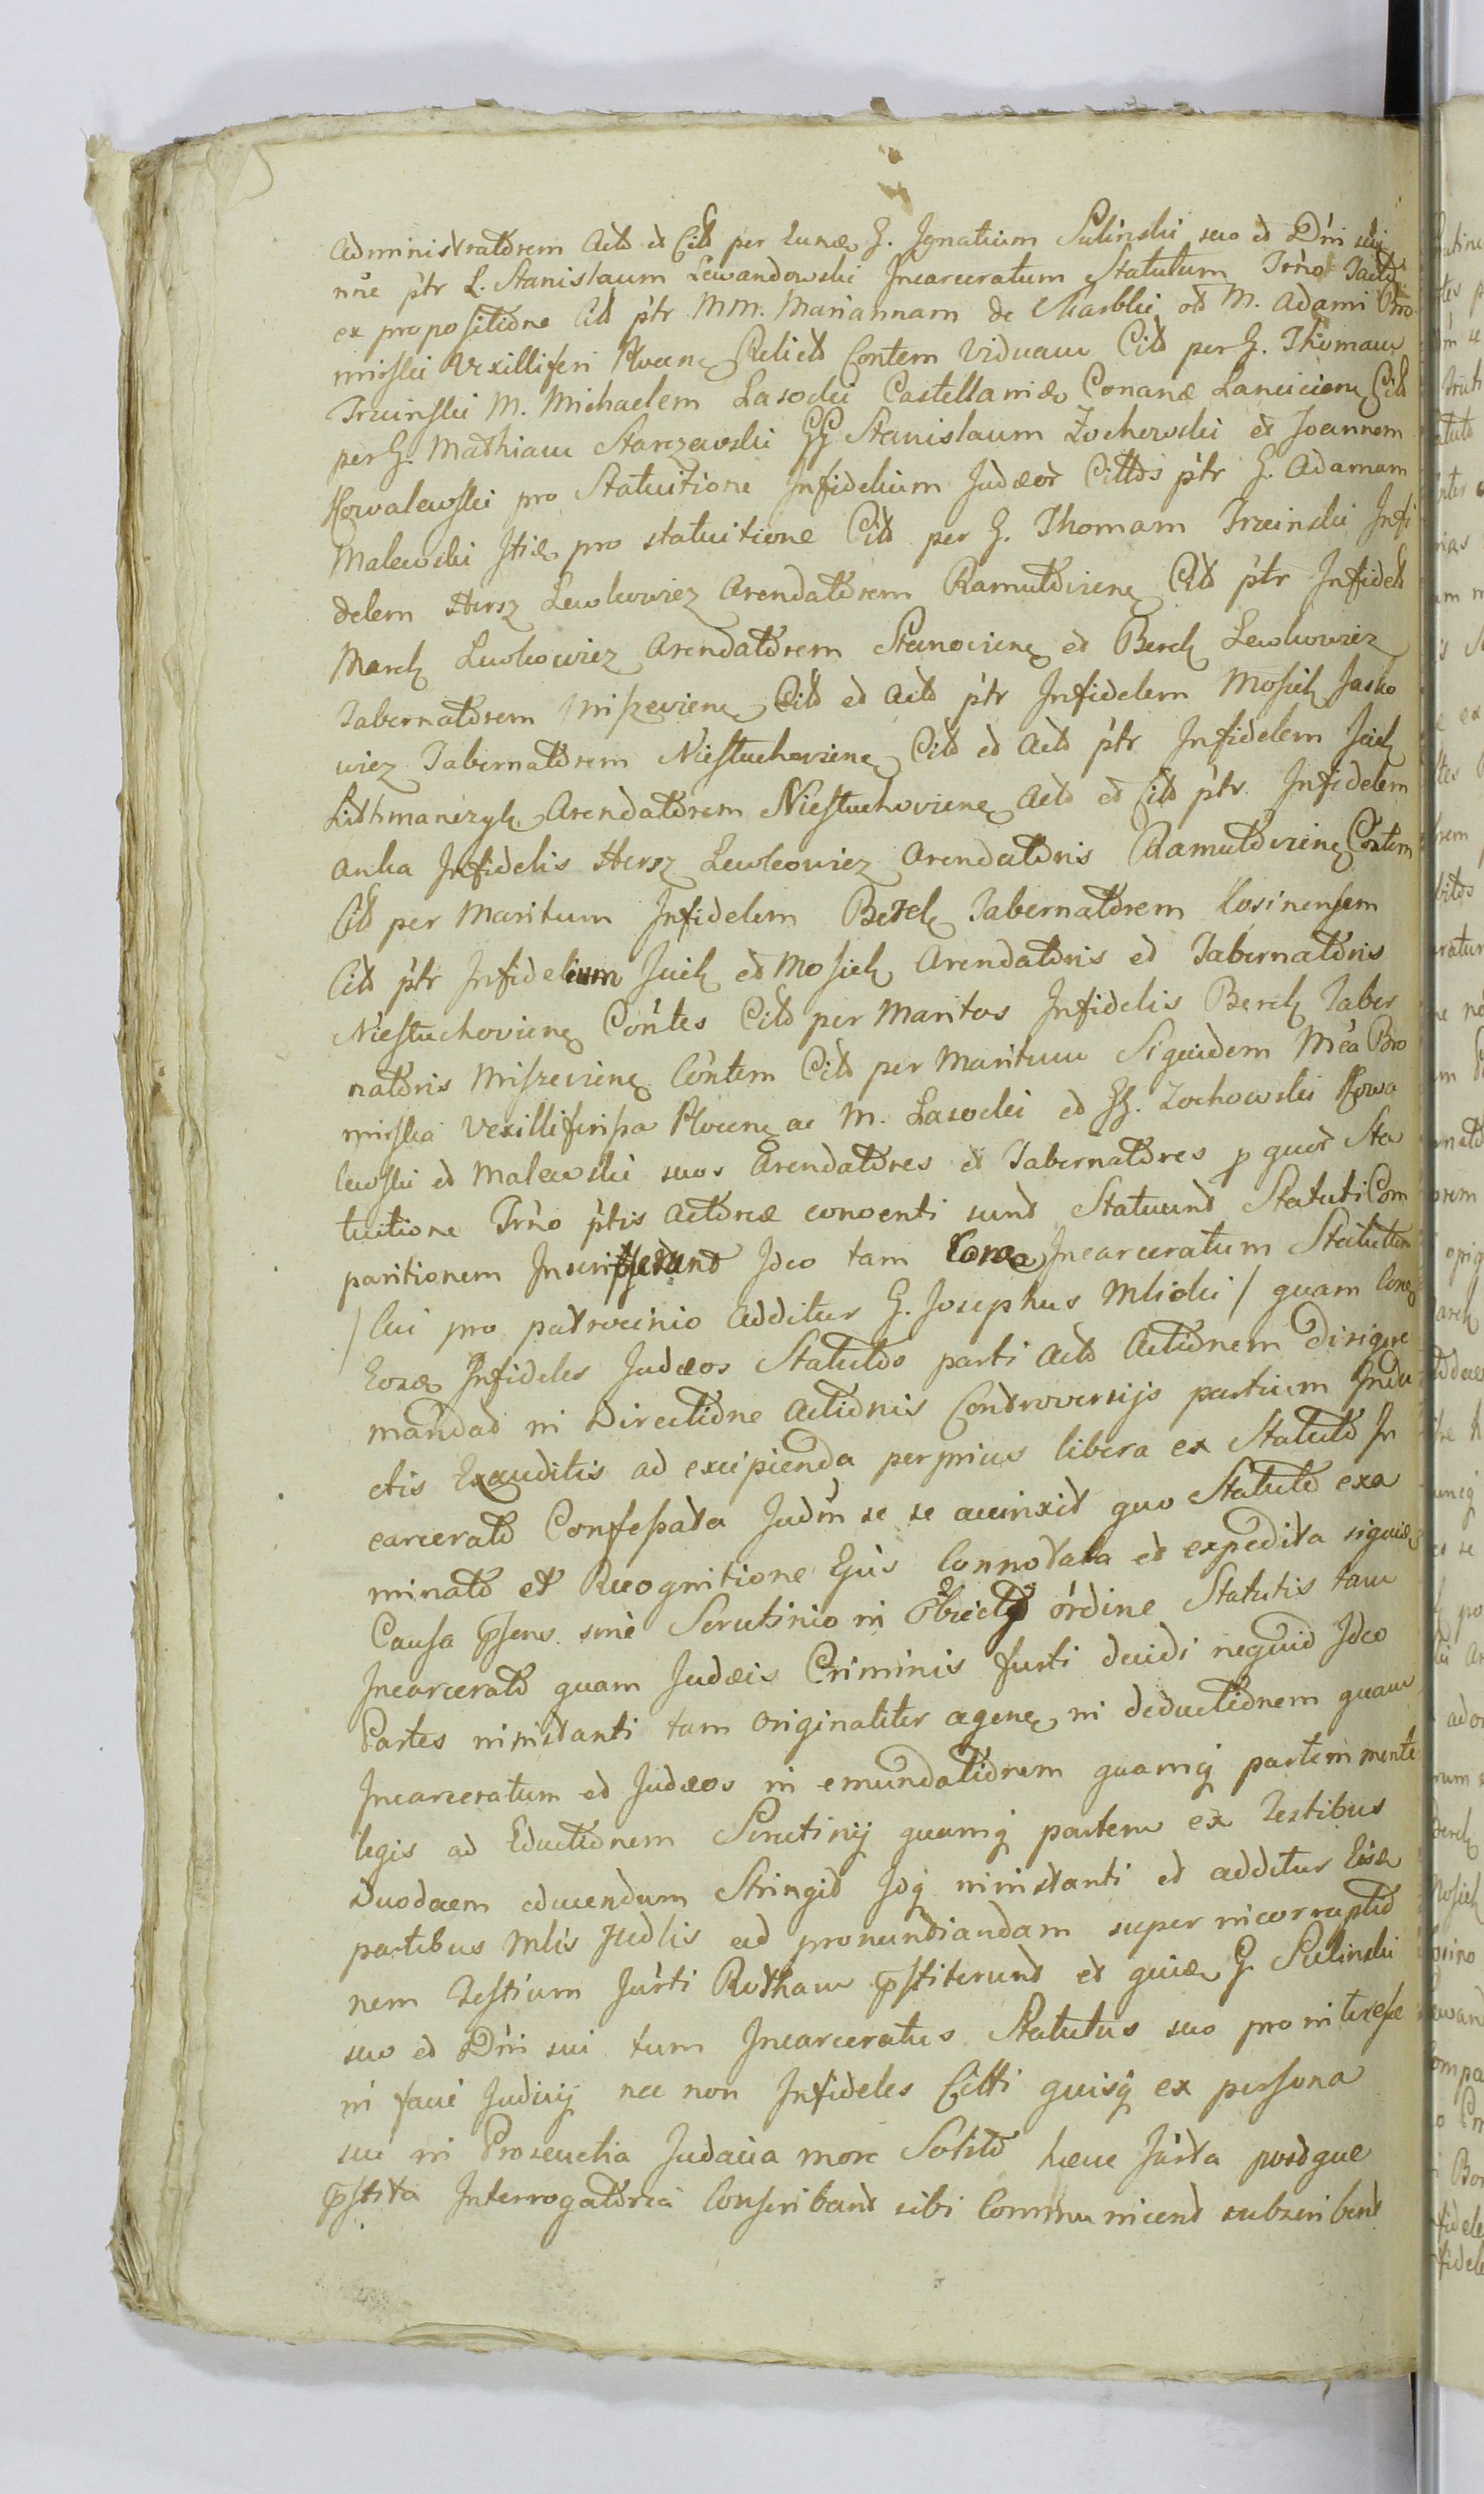 Administratorem Act et Cit per Eunde G. Ignatium Sulinski suo et Dni sui
nne ptr L. Stanislaum Lewandowski Incarceratum Statutum Trno
ex propositione Cit ptr MM. Mariannam de Karskie ol M. Adami Bro
mirski Vexilliferi Plocen Relict Contem Viduam Cit per G. Thomam
Trzcinski M. Michaelem Lasocki Castellanidę Conanae Lancicien Cit
per G. Mathiam Starczewski GG Stanislaum Zochowski et Joannem
Kowalewski pro Statuitione Infidelium Judaeor Cittos ptr G. Adamum
Malewski Itidę pro statuitione Cit per G. Thomam Trzcinski Infi
delem Hersz Lewkowicz Arendatorem Ramutovien Cit ptr Infidel
March Lewkowicz Arendatorem Stanovien et Berek Lewkowicz
Tabernatorem Miszevien Cit et Act ptr Infidelem Mosiek Jasko
wicz Tabernatorem Niestuchovien Cit et Act ptr Infidelem Jcek
Lithmanczyk Arendatorem Niestuchovien Act et Cit ptr Infidelem
Anka Infidelis Hersz Lewkowicz Arendatoris Ramutovien Contem
Cit per Maritum Infidelem Berek Tabernatorem Kosinensem
Cit ptr Infidelium Jcik et Mosiek Arendatoris et Tabernatoris
Niestuchovien Contes Cit per Maritos Infidelis Berek Taber
natoris Miszevien Contem Cit per Maritum Siquidem Mca Bro
mirska Vexilliferissa Plocen ac M. Lasocki et GG. Zochowski Kowa
lewski et Malewski suos Arendatores et Tabernatores p quor Sta
tuitione Trno ptis Actoreae conventi sunt Statuunt Statuti Com
paritionem Inscripserunt Ideo tam Incarceratum Statutum
/ Cui pro patrocinio additur G. Josephus Mlicki / quam
Eosdę Infideles Judaeos Statutos parti Act Actionem Dirigere
mandat in Directione Actionis Controversijs partium Indu
ctis Exauditis ad excipienda perprius libera ex Statuto In
carcerato Confessata Judm se se accinxit quo Statuto exa
minato et Recognitione Ejus Connotata et expedita siquidę
Causa psens sine Scrutinio in Objecto ordine Statutis tam
Incarcerato quam Judaeis Criminis furti decidi nequit Ideo
Partes ninstanti tam Originaliter agen in deductionem quam
Incarceratum et Judaeos in emundationem quamq partem mente
legis ad Eductionem Scrutinij quamq partem ex Testibus
Duodecem educendum Stringit Idq ninstanti et additur Eisdę
partibus Mlis Judlis ad pronuntiandam super incorruptio
nem Testium Jurti Rotham pstiterunt et quidę G Sulinski
suo et Dni sui tum Incarceratus Statutus suo pro interesse
in facie Judicij nec non Infideles Citti quisq ex persona
sui in Proseuctia Judaica more Solito haec Jurta postque
pstita Interrogatoria Conscribant sibi Communicent subscribent